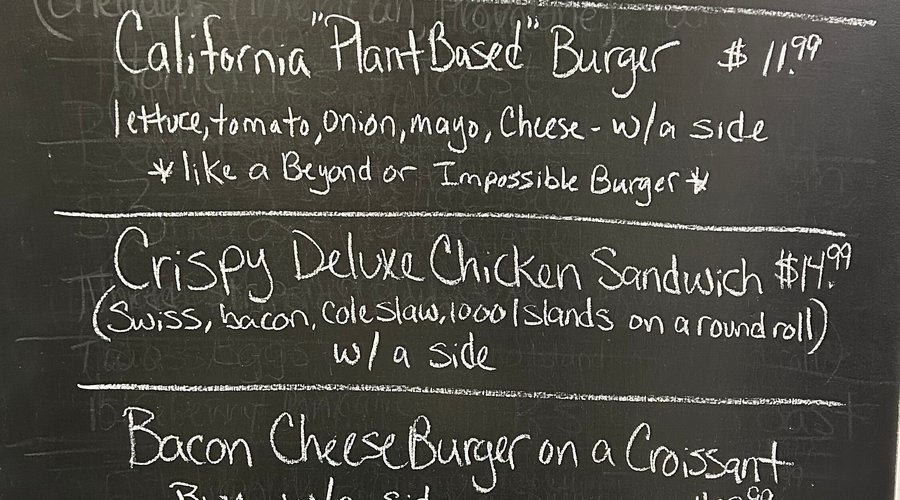 California "Plant Based" Burger $11.99
lettuce, tomato, onion, mayo, Cheese - w/a side
*like a Beyond or Impossible Burger*
Crispy Deluxe Chicken Sandwich $14.99
(Swiss, bacon, Coleslaw, 1000 Islands on a round roll)
w/ a side
Bacon Cheese Burger on a Croissant